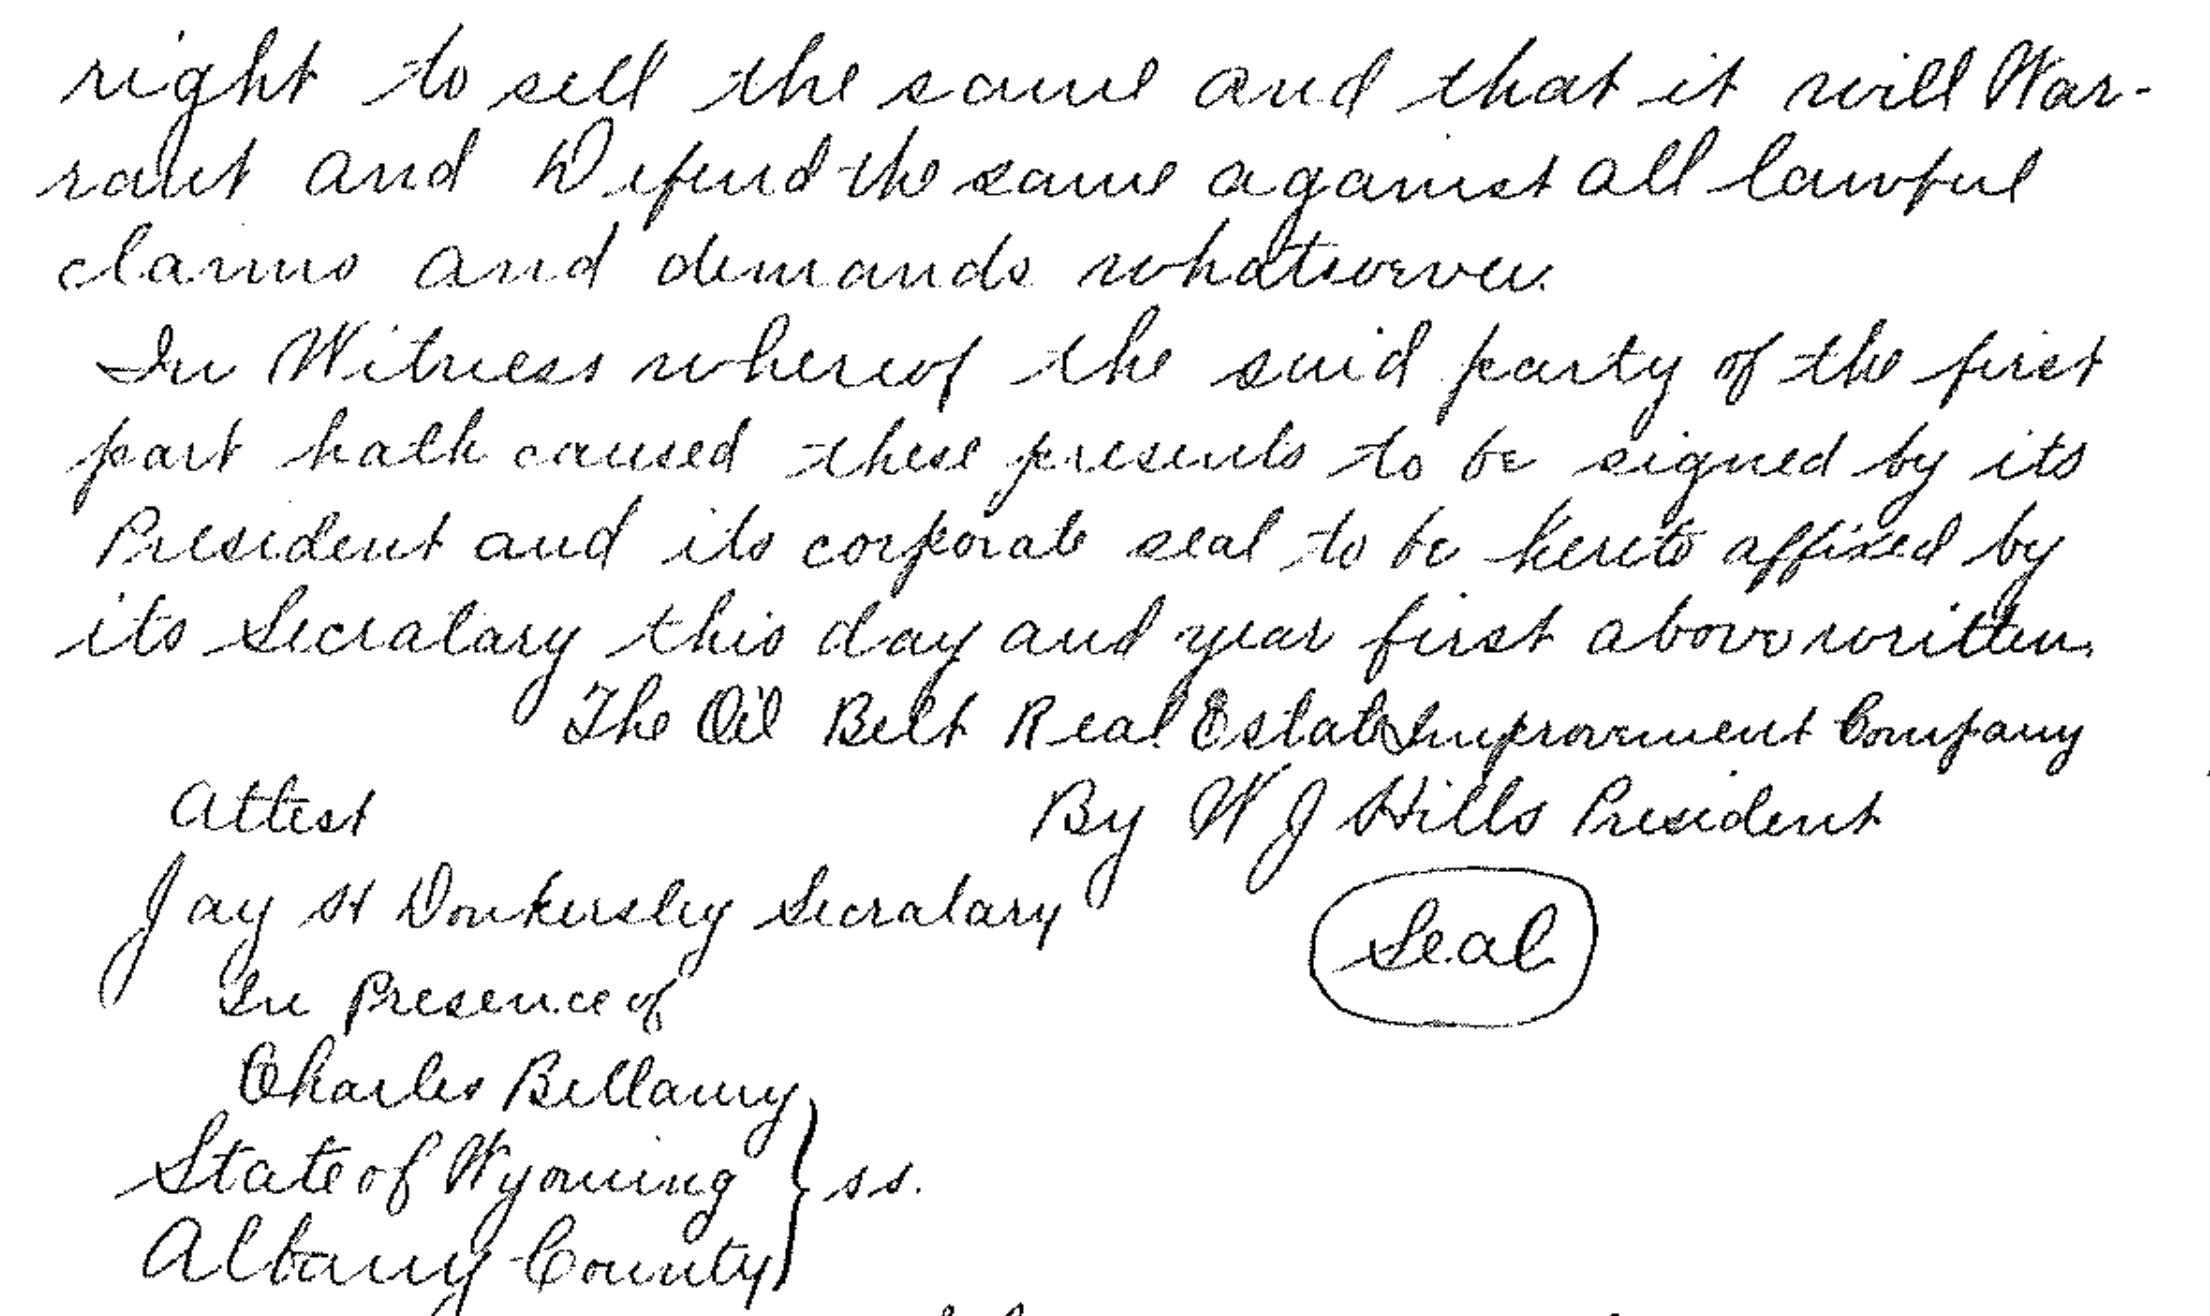 right to sell the same and that it will War-
rant and Defend the same against all lawful
claims and demands whatsoever.
In Witness whereof the said party of the first
part hath caused these presents to be signed by its
President and its corporate seal to be hereto affixed by
its Secratary this day and year first above written.
The Oil Belt Real Estate Improvement Company
Attest By W J Hills President
Jay H Donkersley Secratary
Seal
In Presence of
Charles Bellamy
State of Wyoming } ss.
Albany County